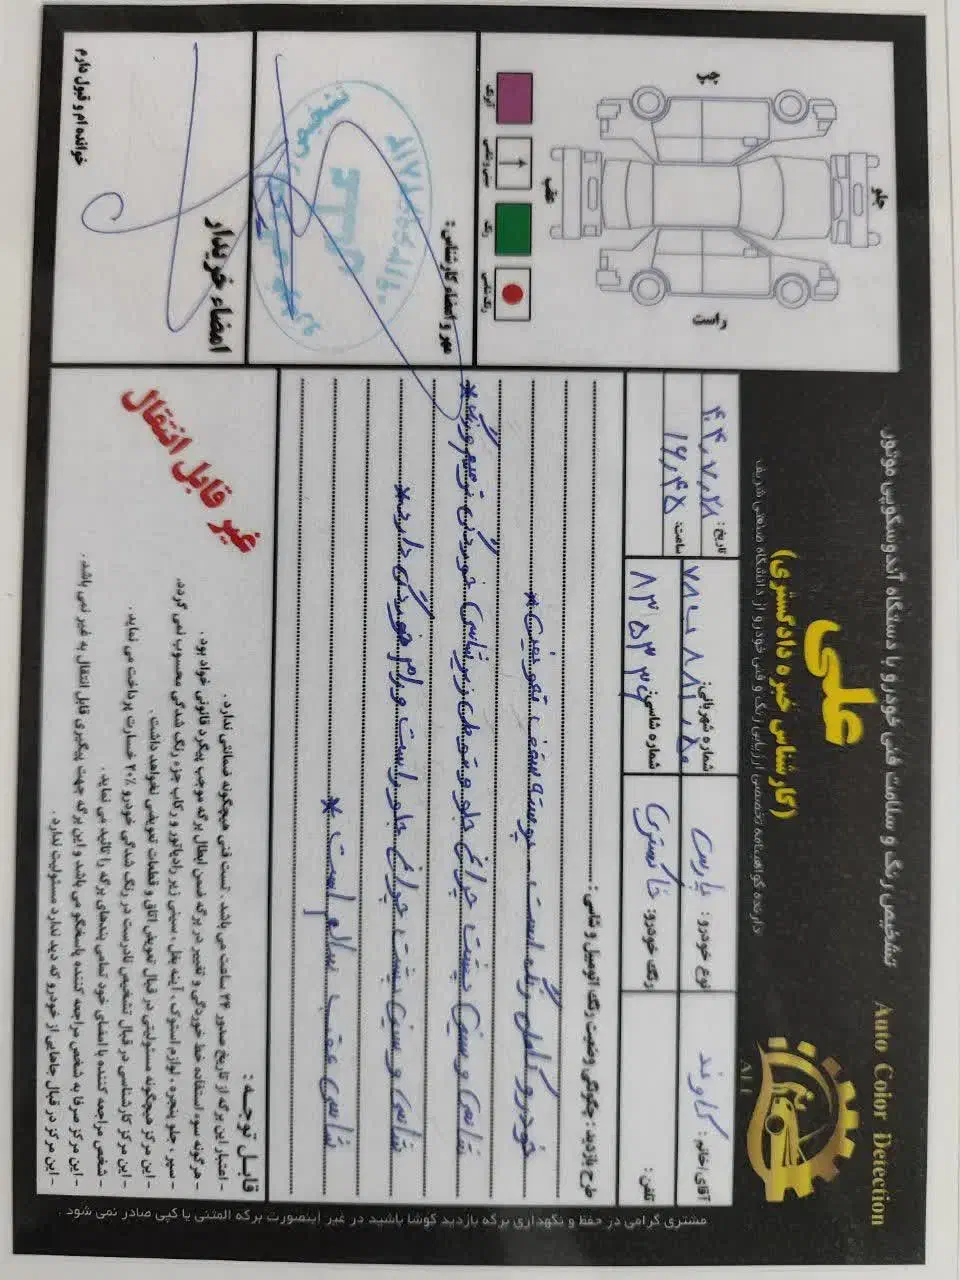 تشخیص رنگ و سلامت فنی خودرو با دستگاه آندوسکوپی موتور
Auto Color Detection
علی
(کارشناس خبره دادگستری)
دارنده گواهینامه تخصصی ارزیابی رنگ و فنی خودرو از دانشگاه صنعتی شریف
ALI
آقای/خانم: کاوند
نوع خودرو: پارس
شماره شهربانی:
تاریخ: ۴۰۴٫۷٫۲۸
تلفن:
رنگ خودرو: خاکستری
شماره شاسی: ۸۳۵۳۳۶
ساعت: ۱۶٫۴۵
طرح بازدید: چگونگی وضعیت رنگ اتومبیل و شاسی:
خودرو کامل رنگ است - پوسته سقف تعویض*
شاسی و سینی پشت چراغ جلو چپ خوردگی ترمیم و رنگ*
شاسی و سینی پشت چراغ جلو راست و رام خوردگی دارد*
شاسی عقب سالم است*
جلو
عقب
چپ
راست
رنگ
مهر و امضاء کارشناس:
امضاء خریدار
خوانده ام و قبول دارم
غیر قابل انتقال
قابل توجه:
- اعتبار این برگه از تاریخ صدور ۲۴ ساعت می باشد. تست فنی هیچگونه ضمانتی ندارد.
- هرگونه سوء استفاده خط خوردگی و تغییر در برگه ضمن ابطال برگه موجب پیگرد قانونی خواد بود.
- سپر، جلو پنجره، لوازم استوک، آینه بغل، سینی زیر رادیاتور و رکاب جزء رنگ شدگی محسوب نمی گردد.
- این مرکز هیچگونه مسئولیتی در قبال تعویض اتاق و قطعات تعویضی نخواهد داشت.
- این مرکز کارشناسی در قبال تشخیص نادرست در رنگ شدگی خودرو ۲۰٪ خسارت پرداخت می نماید.
- شخص مراجعه کننده با امضای خود تمامی بندهای برگه را تائید می نماید.
- این مرکز صرفا به شخص مراجعه کننده پاسخگو می باشد و این برگه جهت پیگیری قابل انتقال به غیر نمی باشد.
- این مرکز در قبال جاهایی از خودرو که دید ندارد مسئولیت ندارد.
مشتری گرامی در حفظ و نگهداری برگه بازدید کوشا باشید در غیر اینصورت برگه المثنی یا کپی صادر نمی شود.